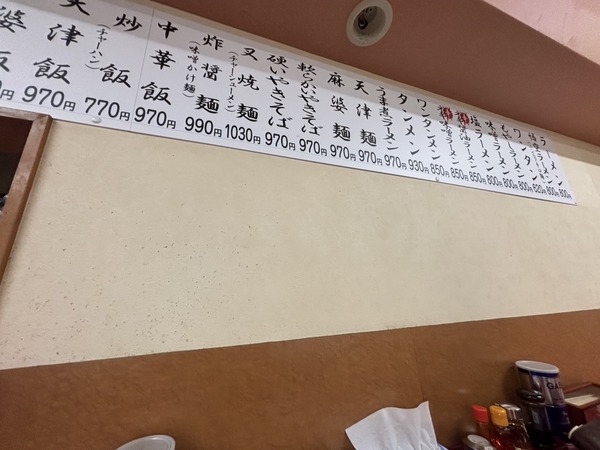 ラーメン 800円
ラーメン 800円
ワンタン 820円
ラーメン 800円
ラーメン 800円
塩ラーメン 800円
味噌ラーメン 850円
味噌ラーメン 850円
ワンタンメン 850円
タンメン 930円
うま煮ラーメン 970円
天津麺 970円
麻婆麺 970円
軟らかいやきそば 970円
硬いやきそば 970円
叉焼麺 (チャーシューメン) 1030円
炸醤麺 (味噌かけ麺) 990円
中華飯 970円
炒飯 (チャーハン) 770円
天津飯 970円
婆飯